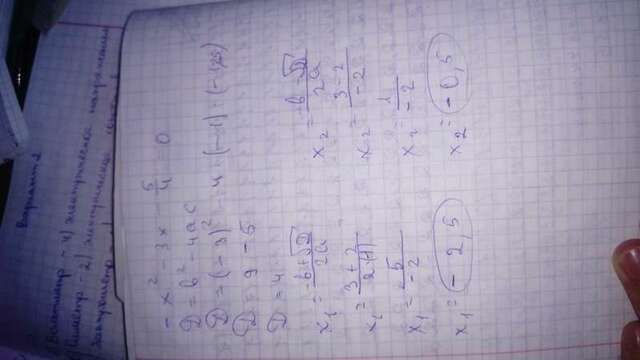 Вариант 2
Вольтметр - 4) электрическое напряжение
- 2) электрический
-x² - 3x - 5/4 = 0
D = b² - 4ac
D = (-3)² - 4 · (-1) · (-1,25)
D = 9 - 5
D = 4
x₁ = -b+√D/2a
x₁ = 3+2/2·(-1)
x₁ = 5/-2
x₁ = -2,5
x₂ = -b-√D/2a
x₂ = 3-2/-2
x₂ = 1/-2
x₂ = -0,5